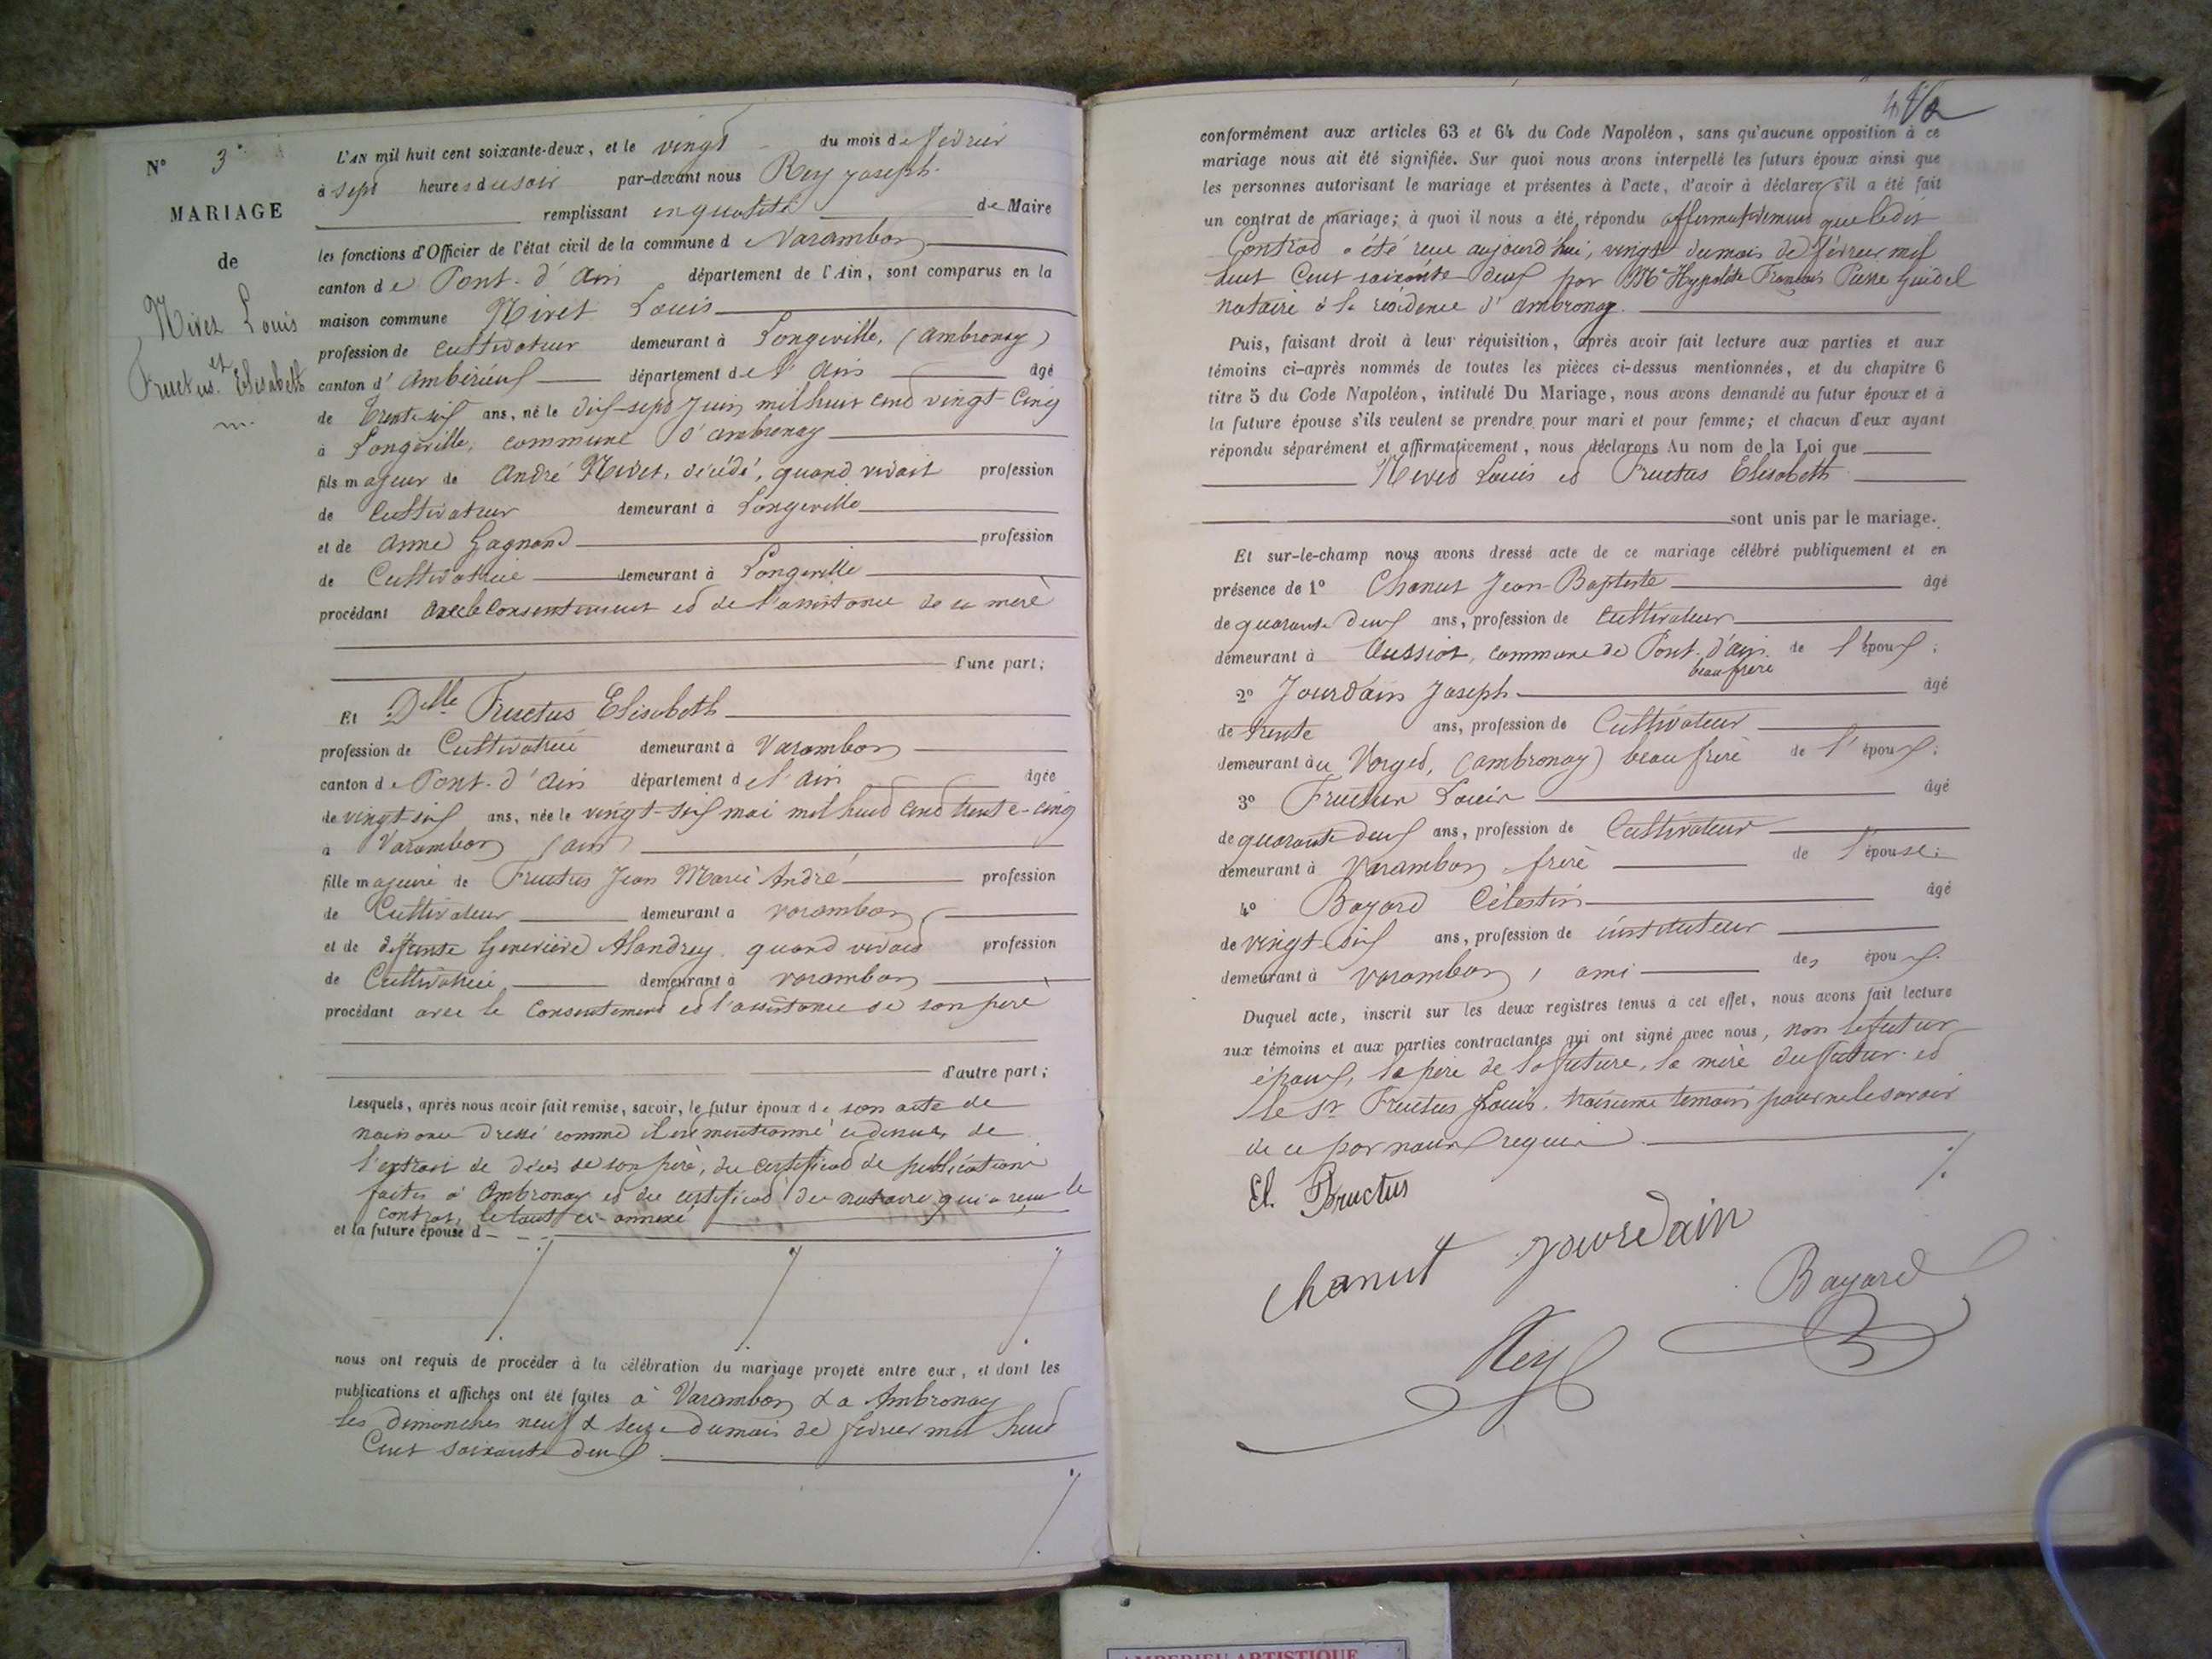 N° 3
MARIAGE
de
Nivet Louis
et
Fructus Elisabeth
L'AN mil huit cent soixante-deux, et le vingt du mois de février
à sept heures du soir par-devant nous Rey Joseph
remplissant en qualité de Maire
les fonctions d'Officier de l'état civil de la commune de Varambon
canton de Pont-d'Ain département de l'Ain, sont comparus en la
maison commune Nivet Louis
profession de cultivateur demeurant à Longeville, (Ambronay)
canton d'Ambérieux département de l'Ain âgé
de trente-six ans, né le dix-sept Juin mil huit cent vingt-cinq
à Longeville, commune d'Ambronay
fils majeur de André Nivet, décédé, quand vivait profession
de Cultivateur demeurant à Longeville
et de Anne Gagnond profession
de Cultivatrice demeurant à Longeville
procédant avec le consentement et de l'assistance de sa mère
d'une part;
Et Delle Fructus Elisabeth
profession de Cultivatrice demeurant à Varambon
canton de Pont-d'Ain département de l'Ain âgée
de vingt-six ans, née le vingt-six mai mil huit cent trente-cinq
à Varambon (ain)
fille majeure de Fructus Jean Marie André profession
de Cultivateur demeurant à Varambon
et de défunte Geneviève Alandrey quand vivait profession
de Cultivatrice demeurant à Varambon
procédant avec le consentement et l'assistance de son père
d'autre part;
Lesquels, après nous avoir fait remise, savoir, le futur époux de son acte de
naissance dressé comme il est mentionné ci dessus, de
l'extrait de décès de son père, du certificat de publications
faites à Ambronay et du certificat du notaire qui a reçu le
contrat, le tout ci-annexé
et la future épouse d
nous ont requis de procéder à la célébration du mariage projeté entre eux, et dont les
publications et affiches ont été faites à Varambon & à Ambronay
les dimanches neuf & seize du mois de février mil huit
Cent soixante deux
conformément aux articles 63 et 64 du Code Napoléon, sans qu'aucune opposition à ce
mariage nous ait été signifiée. Sur quoi nous avons interpellé les futurs époux ainsi que
les personnes autorisant le mariage et présentes à l'acte, d'avoir à déclarer s'il a été fait
un contrat de mariage; à quoi il nous a été répondu affirmativement que ledit
Contrat a été reçu aujourd'hui, vingt du mois de février mil
huit Cent soixante-deux par Me Hypolite François Pierre Guidel
notaire à la résidence d'ambronay.
Puis, faisant droit à leur réquisition, après avoir fait lecture aux parties et aux
témoins ci-après nommés de toutes les pièces ci-dessus mentionnées, et du chapitre 6
titre 5 du Code Napoléon, intitulé Du Mariage, nous avons demandé au futur époux et à
la future épouse s'ils veulent se prendre pour mari et pour femme; et chacun d'eux ayant
répondu séparément et affirmativement, nous déclarons Au nom de la Loi que
Nivet Louis et Fructus Elisabeth
sont unis par le mariage.
Et sur-le-champ nous avons dressé acte de ce mariage célébré publiquement et en
présence de 1° Chanut Jean-Baptiste âgé
de quarante deux ans, profession de Cultivateur
demeurant à Oussiat, commune de Pont-d'ain. beau frère de l'époux;
2° Jourdain Joseph âgé
de trente ans, profession de Cultivateur
demeurant au Vorget, (ambronay) beau frère de l'époux;
3° Fructus Louis âgé
de quarante deux ans, profession de Cultivateur
demeurant à Varambon frère de l'épouse;
4° Bayard Célestin âgé
de vingt-six ans, profession de instituteur
demeurant à Varambon, ami des époux.
Duquel acte, inscrit sur les deux registres tenus à cet effet, nous avons fait lecture
aux témoins et aux parties contractantes qui ont signé avec nous, non le futur
époux, le père de la future, la mère du futur et
le Sr Fructus Louis, troisième témoin pour ne le savoir
de ce par nous requis.
El. Fructus
chanut jourdain
Bayard
Rey
AMBERIEU ARTISTIQUE